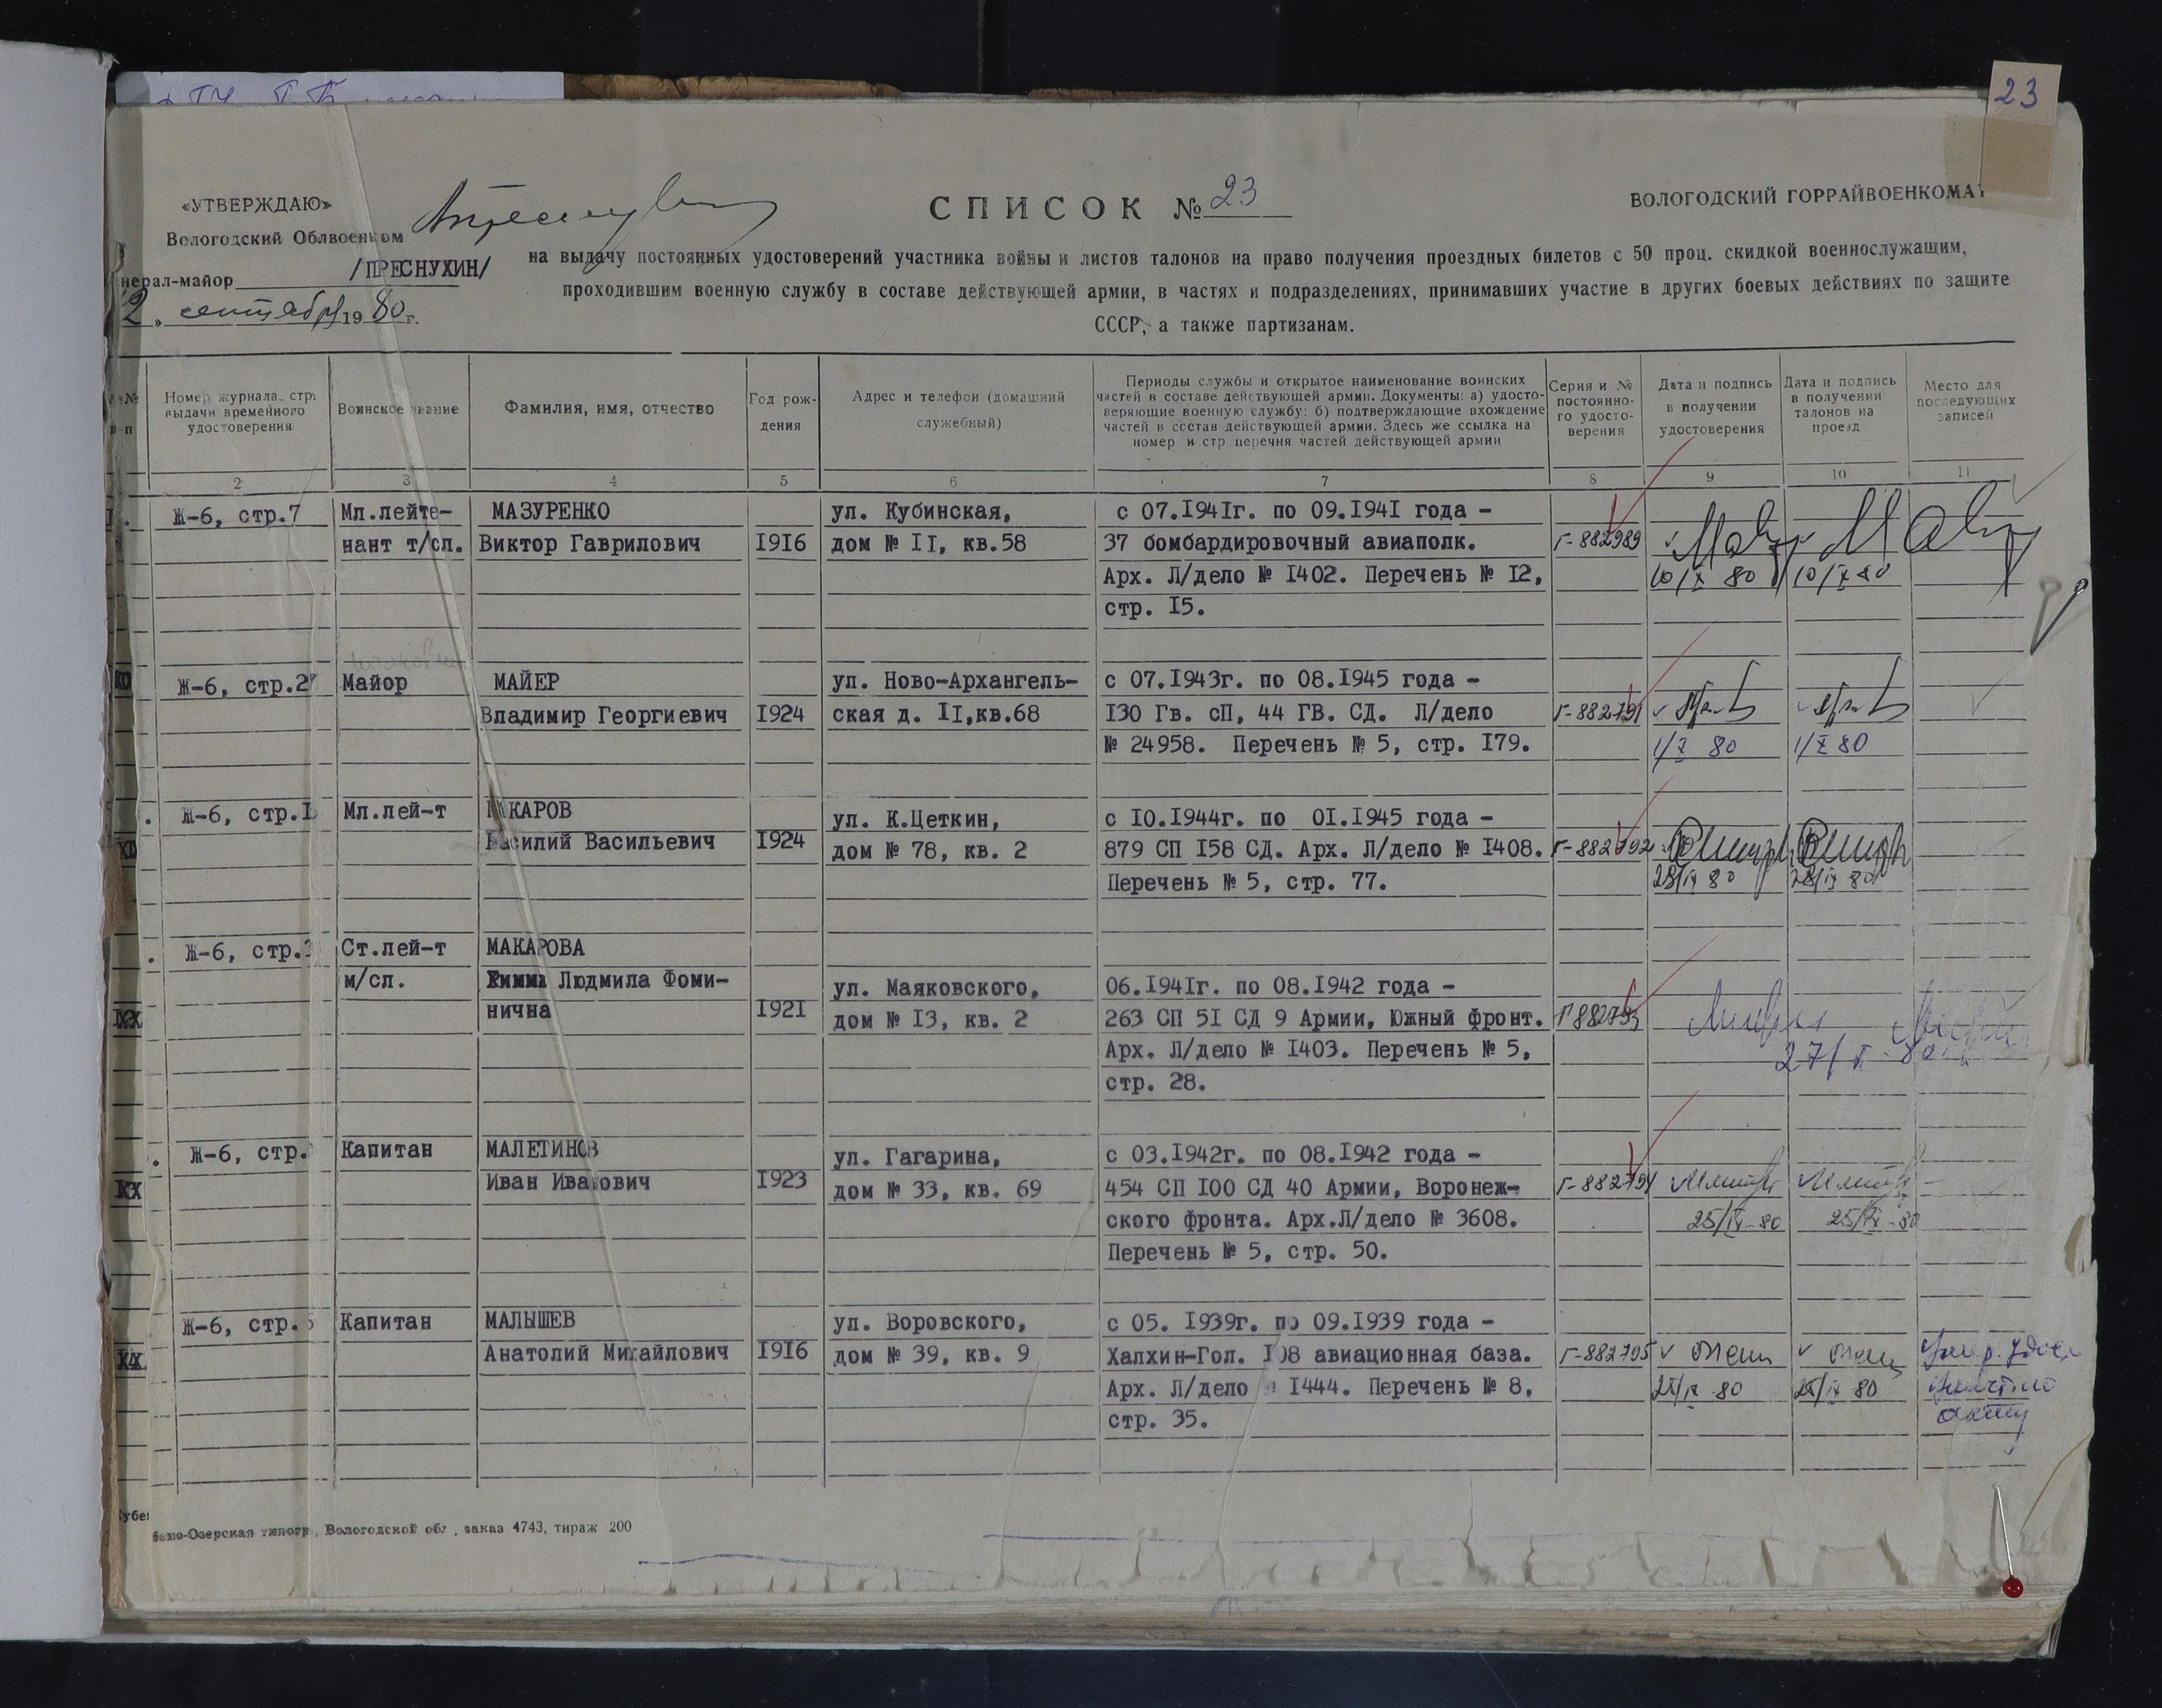 23
«УТВЕРЖДАЮ»
Вологодский Облвоенком
нерал-майор /ПРЕСНУХИН/
2 » сентября 19 80 г.
СПИСОК № 23
ВОЛОГОДСКИЙ ГОРРАЙВОЕНКОМАТ
на выдачу постоянных удостоверений участника войны и листов талонов на право получения проездных билетов с 50 проц. скидкой военнослужащим,
проходившим военную службу в составе действующей армии, в частях и подразделениях, принимавших участие в других боевых действиях по защите
СССР, а также партизанам.
№№
п п
Номер журнала, стр.
выдачи временного
удостоверения
Воинское звание
Фамилия, имя, отчество
Год рож-
дения
Адрес и телефон (домашний
служебный)
Периоды службы и открытое наименование воинских
частей в составе действующей армии. Документы: а) удосто-
веряющие военную службу: б) подтверждающие вхождение
частей в состав действующей армии. Здесь же ссылка на
номер и стр перечня частей действующей армии
Серия и №
постоянно-
го удосто-
верения
Дата и подпись
в получении
удостоверения
Дата и подпись
в получении
талонов на
проезд
Место для
последующих
записей
2 3 4 5 6 7 8 9 10 11
Ж-6, стр.7
Мл.лейте-
нант т/сл.
МАЗУРЕНКО
Виктор Гаврилович
I9I6
ул. Кубинская,
дом № II, кв.58
с 07.I94Iг. по 09.I94I года -
37 бомбардировочный авиаполк.
Арх. Л/дело № I402. Перечень № I2,
стр. I5.
Г-882989
10/X 80
10/X 80
Ж-6, стр.27
Майор
МАЙЕР
Владимир Георгиевич
I924
ул. Ново-Архангель-
ская д. II,кв.68
с 07.I943г. по 08.I945 года -
I30 Гв. сП, 44 ГВ. СД. Л/дело
№ 24958. Перечень № 5, стр. I79.
Г-882791
1/X 80
1/X 80
Ж-6, стр.I
Мл.лей-т
МАКАРОВ
Василий Васильевич
I924
ул. К.Цеткин,
дом № 78, кв. 2
с I0.I944г. по 0I.I945 года -
879 СП I58 СД. Арх. Л/дело № I408.
Перечень № 5, стр. 77.
Г-882792
28/IX 80
28/IX 80
Ж-6, стр.3
Ст.лей-т
м/сл.
МАКАРОВА
Людмила Фоми-
нична
I92I
ул. Маяковского,
дом № I3, кв. 2
06.I94Iг. по 08.I942 года -
263 СП 5I СД 9 Армии, Южный фронт.
Арх. Л/дело № I403. Перечень № 5,
стр. 28.
Г 882793
Ж-6, стр.
Капитан
МАЛЕТИНОВ
Иван Иванович
I923
ул. Гагарина,
дом № 33, кв. 69
с 03.I942г. по 08.I942 года -
454 СП I00 СД 40 Армии, Воронеж-
ского фронта. Арх.Л/дело № 3608.
Перечень № 5, стр. 50.
Г-882794
25/IX-80
25/IX-80
Ж-6, стр.5
Капитан
МАЛЫШЕВ
Анатолий Михайлович
I9I6
ул. Воровского,
дом № 39, кв. 9
с 05. I939г. по 09.I939 года -
Халхин-Гол. I08 авиационная база.
Арх. Л/дело № I444. Перечень № 8,
стр. 35.
Г-882795
25/IX 80
25/IX 80
акту
бено-Озерская типогр. Вологодской обл., заказ 4743, тираж 200